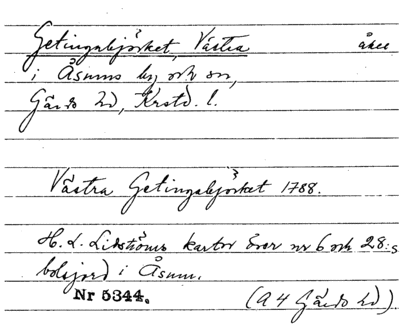 Getingabjörket, Västra åker
i Åsums by och sn,
Gärds hd, Krstd. l.
Västra Getingabjörket 1788.
H. L. Lidströms kartor över nr 6 och 28:s
bolsjord i Åsum.
Nr 5344. (A 4 Gärds hd)